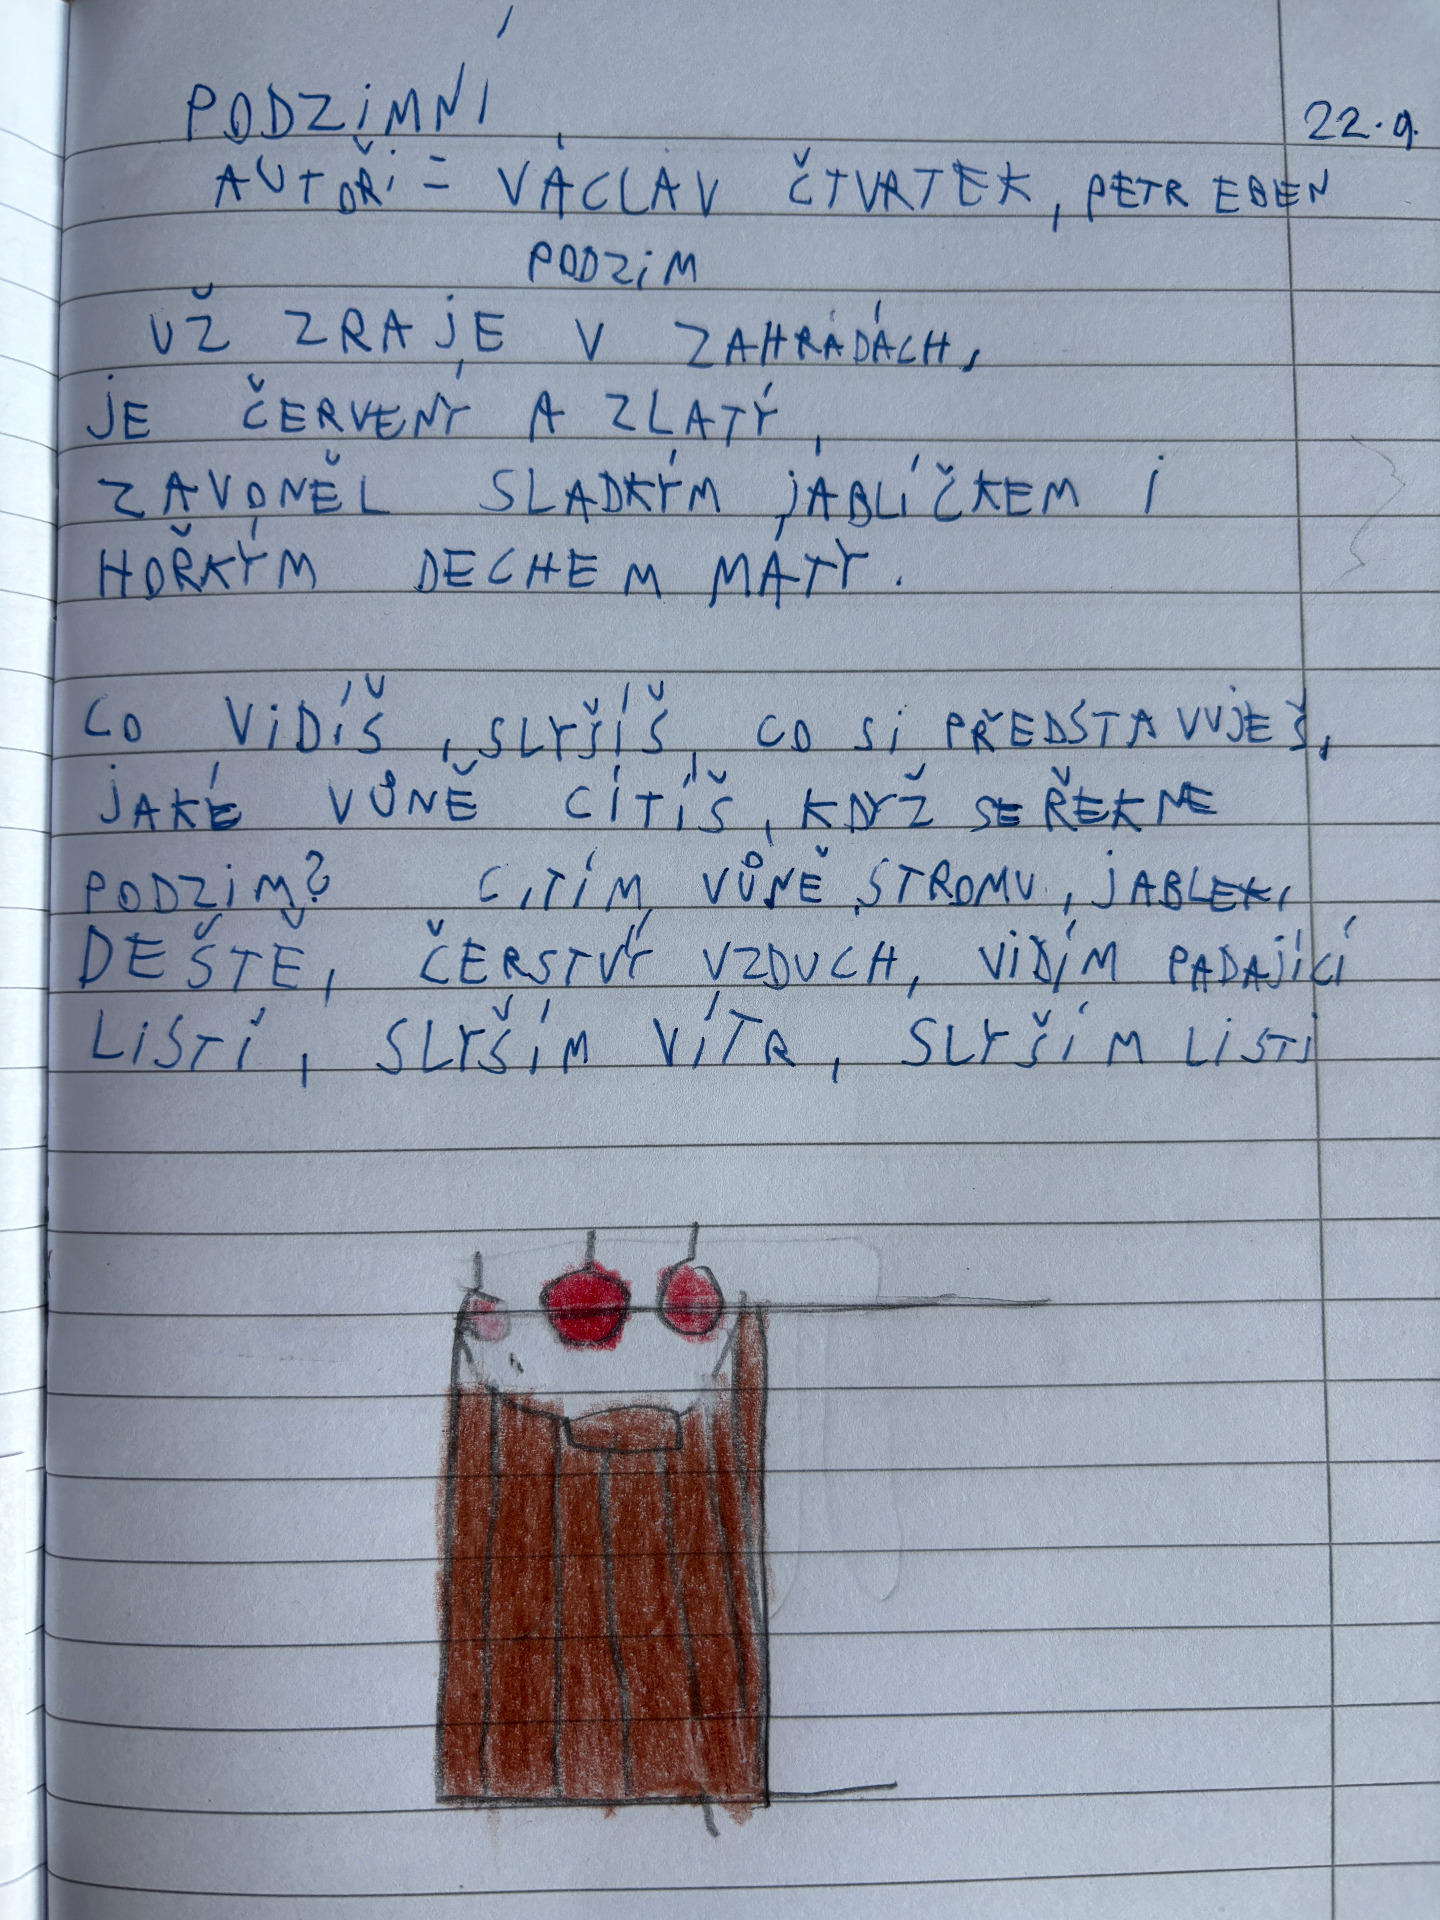 PODZIMNÍ 22.9.
AUTOŘI = VÁCLAV ČTVRTEK, PETR EBEN
PODZIM
UŽ ZRAJE V ZAHRÁDÁCH,
JE ČERVENÝ A ZLATÝ,
ZAVONĚL SLADKÝM JABLÍČKEM I
HOŘKÝM DECHEM MÁTY.
CO VIDÍŠ, SLYŠÍŠ, CO SI PŘEDSTAVUJEŠ,
JAKÉ VŮNĚ CÍTÍŠ, KDYŽ SE ŘEKNE
PODZIM? CITÍM VŮNĚ STROMU, JABLEK,
DEŠTĚ, ČERSTVÝ VZDUCH, VIDÍM PADAJÍCÍ
LISTÍ, SLYŠÍM VÍTR, SLYŠÍM LISTÍ